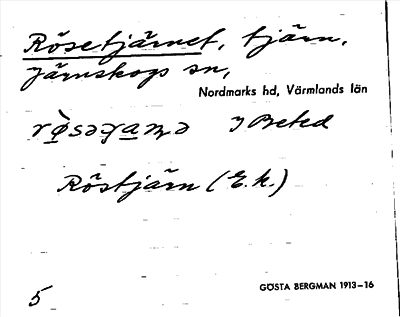 Rösetjärnet, tjärn,
Järnskogs sn,
Nordmarks hd, Värmlands län
I Beted
Röstjärn (E.k.)
5
GÖSTA BERGMAN 1913–16